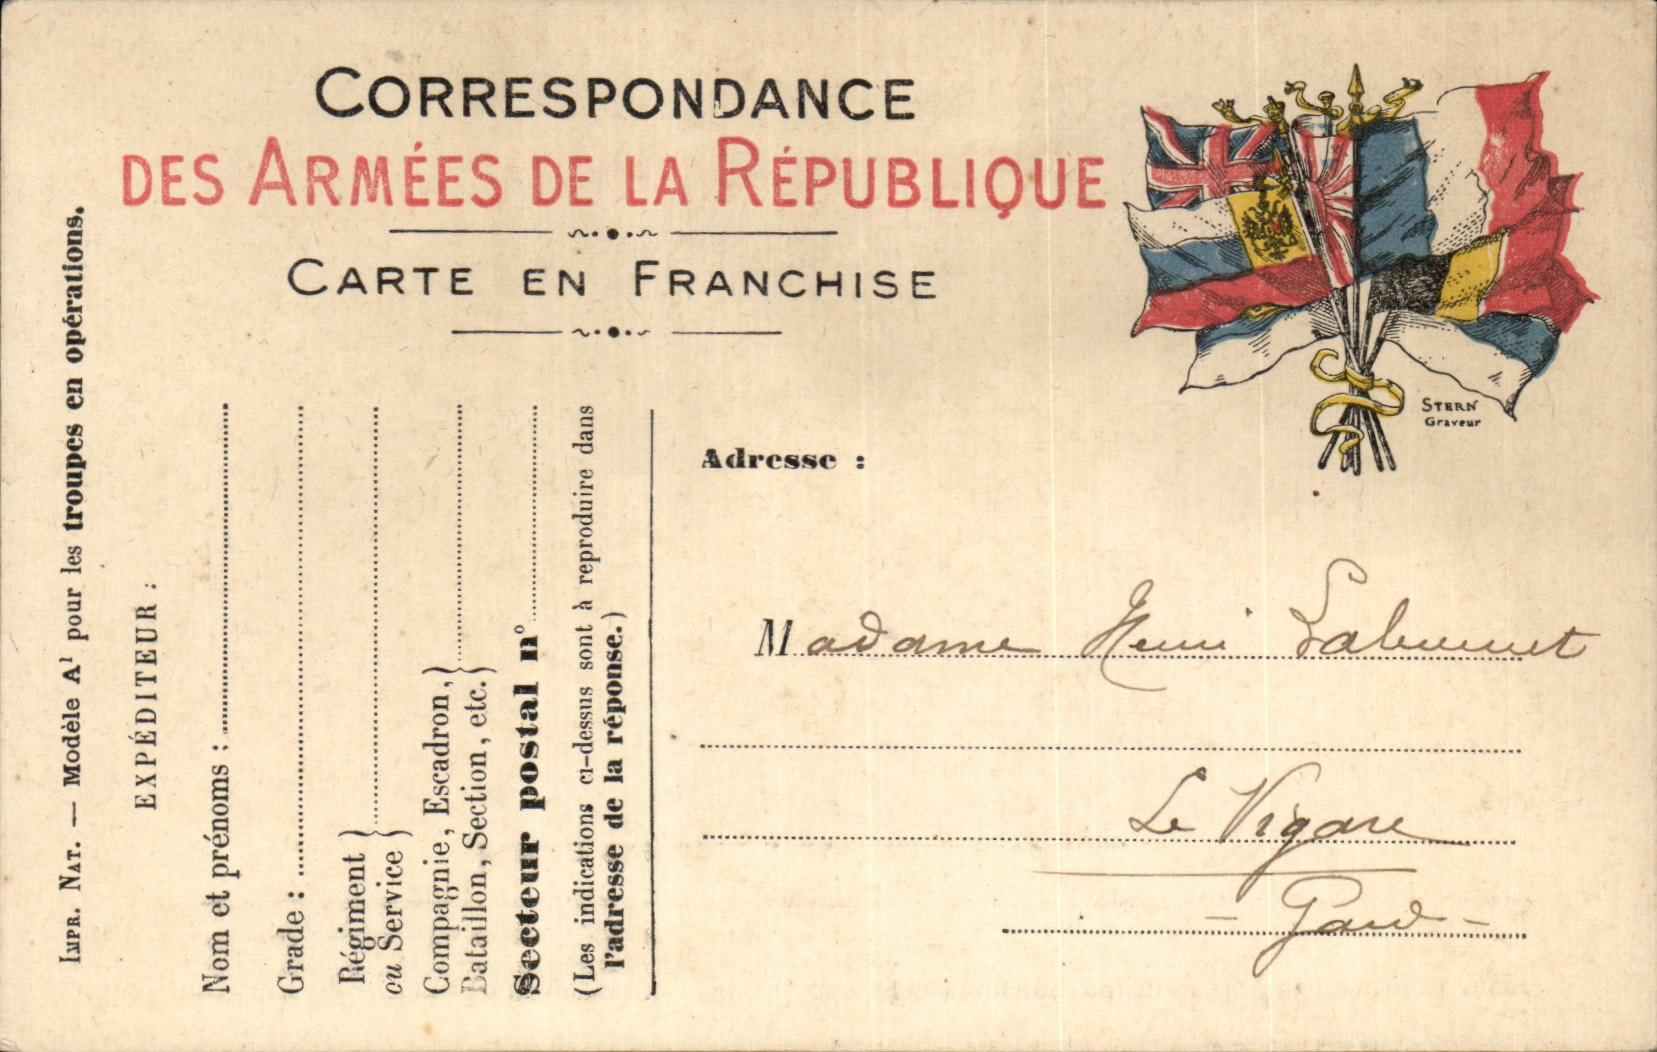 CORRESPONDANCE
DES ARMÉES DE LA RÉPUBLIQUE
CARTE EN FRANCHISE
STERN
Graveur
IMPR. NAT. — Modèle A¹ pour les troupes en opérations.
EXPÉDITEUR :
Nom et prénoms :
Grade :
Régiment }
ou Service }
Compagnie, Escadron, }
Bataillon, Section, etc. }
Secteur postal n°
(Les indications ci-dessus sont à reproduire dans
l'adresse de la réponse.)
Adresse :
Madame Henri
Le Vigan
- Gard -